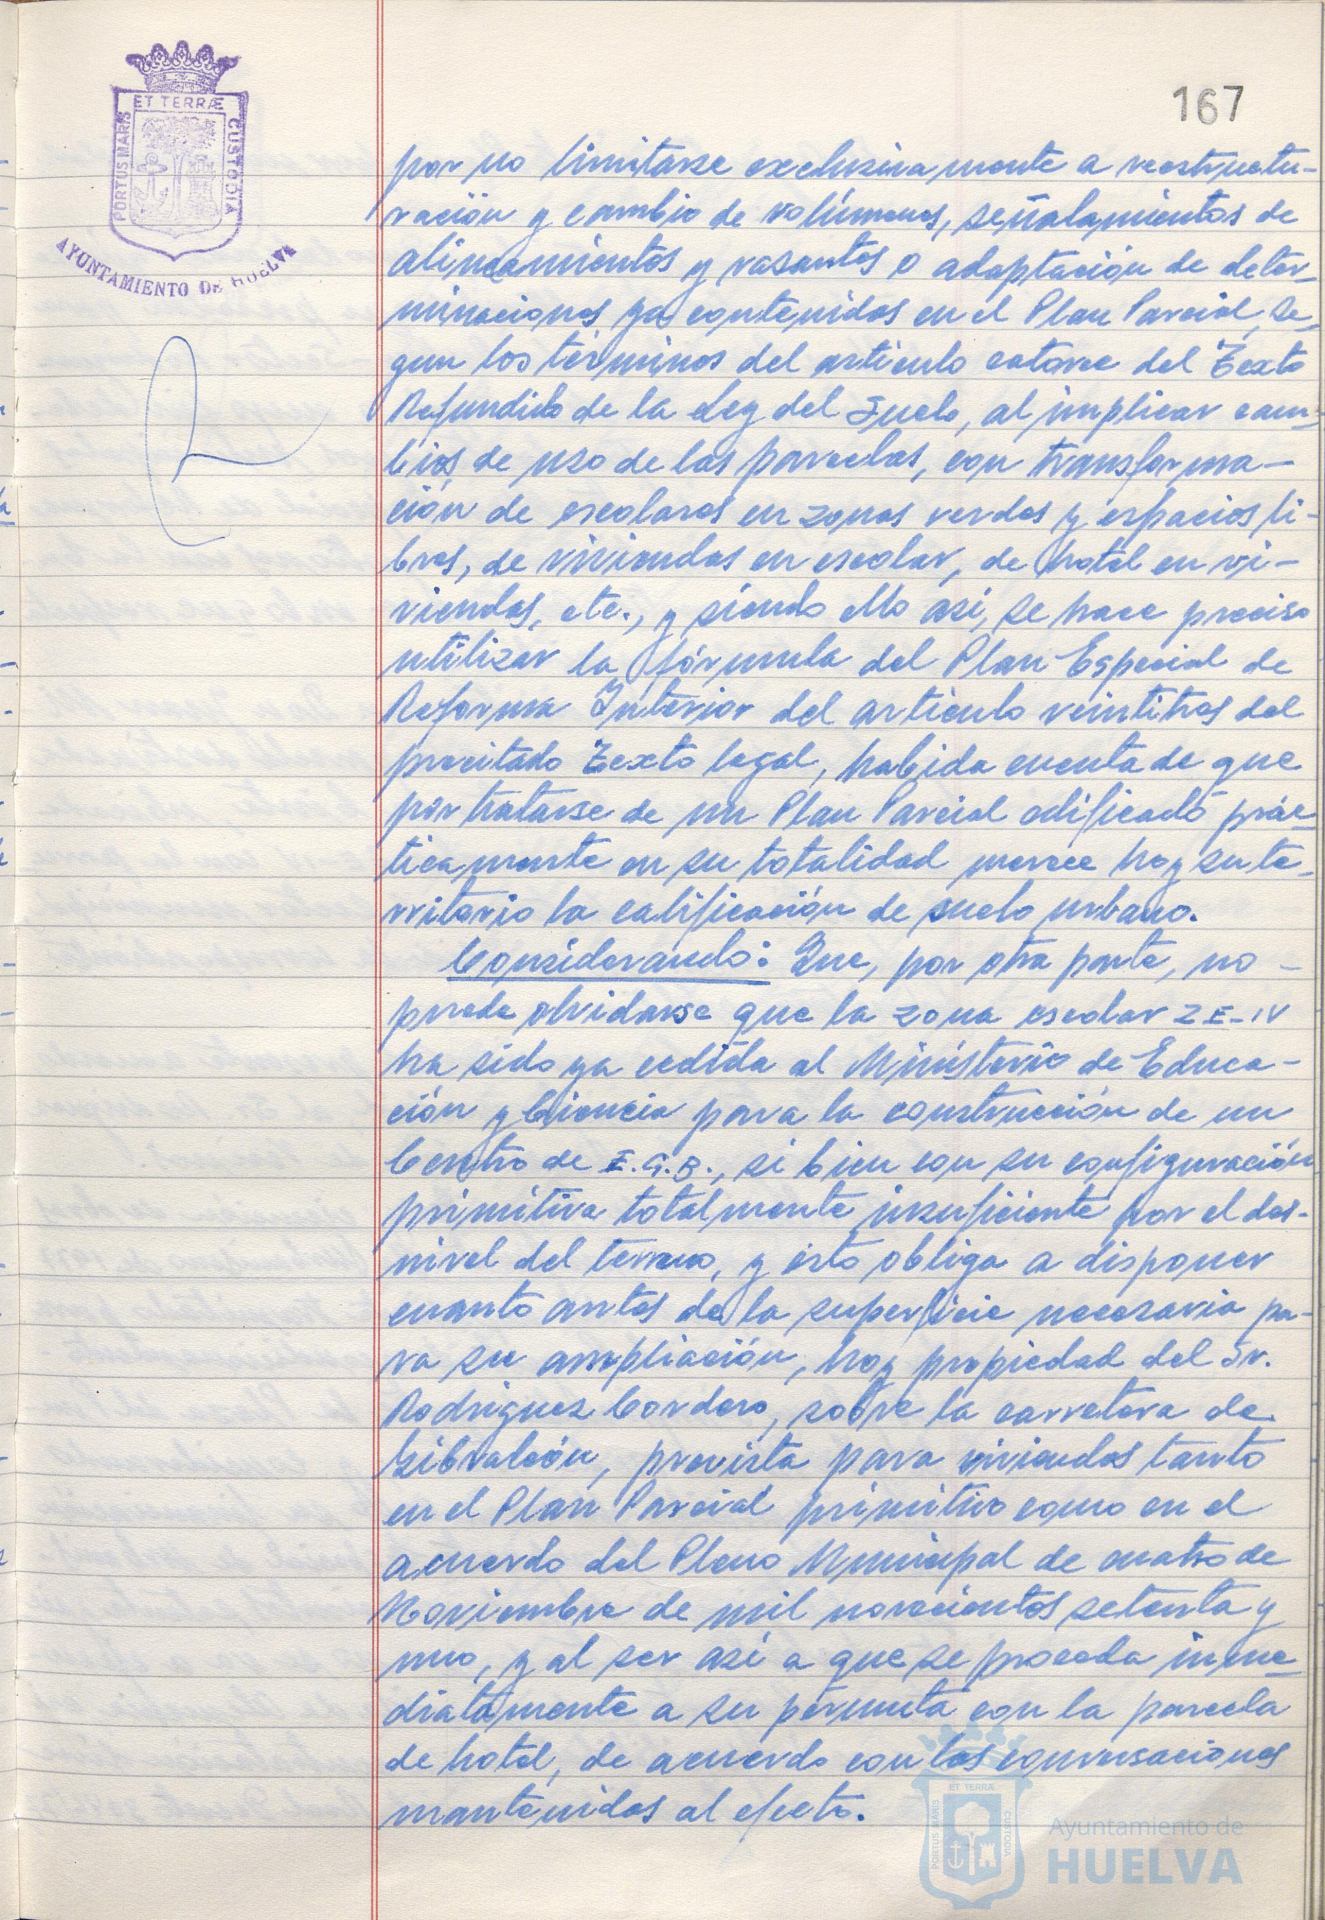 ET TERRÆ
PORTUS MARIS
CUSTODIA
AYUNTAMIENTO DE HUELVA
167
por no limitarse exclusivamente a reestructu-
ración y cambio de volúmenes, señalamientos de
alineamientos y rasantes o adaptación de deter-
minaciones ya contenidas en el Plan Parcial, se-
gun los términos del artículo catorce del Texto
Refundido de la Ley del Suelo, al implicar cam-
bios de uso de las parcelas, con transforma-
ción de escolares en zonas verdes y espacios li-
bres, de viviendas en escolar, de hotel en vi-
viendas, etc., y siendo ello así, se hace preciso
utilizar la fórmula del Plan Especial de
Reforma Interior del artículo veintitres del
precitado Texto legal, habida cuenta de que
por tratarse de un Plan Parcial edificado prác-
ticamente en su totalidad merece hoy su te-
rritorio la calificación de suelo urbano.
Considerando: Que, por otra parte, no -
puede olvidarse que la zona escolar ZE-IV
ha sido ya cedida al Ministerio de Educa-
ción y Ciencia para la construcción de un
Centro de E.G.B., si bien con su configuración
primitiva totalmente insuficiente por el des-
nivel del terreno, y ésto obliga a disponer
cuanto antes de la superficie necesaria pa-
ra su ampliación, hoy propiedad del Sr.
Rodriguez Cordero, sobre la carretera de
Gibraleón, prevista para viviendas tanto
en el Plan Parcial primitivo como en el
acuerdo del Pleno Municipal de cuatro de
Noviembre de mil novecientos setenta y
uno, y al ser así a que se proceda inme-
diatamente a su permuta con la parcela
de hotel, de acuerdo con las conversaciones
mantenidas al efecto.
ET TERRÆ
PORTUS MARIS
CUSTODIA
Ayuntamiento de
HUELVA